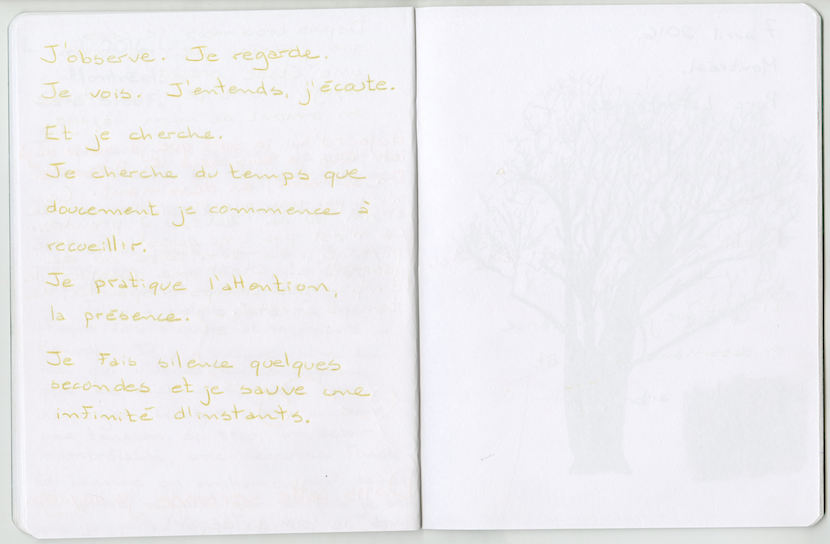 J'observe. Je regarde.
Je vois. J'entends, j'écoute.
Et je cherche.
Je cherche du temps que
doucement je commence à
recueillir.
Je pratique l'attention,
la présence.
Je fais silence quelques
secondes et je sauve une
infinité d'instants.
7 avril 2016
Montréal.